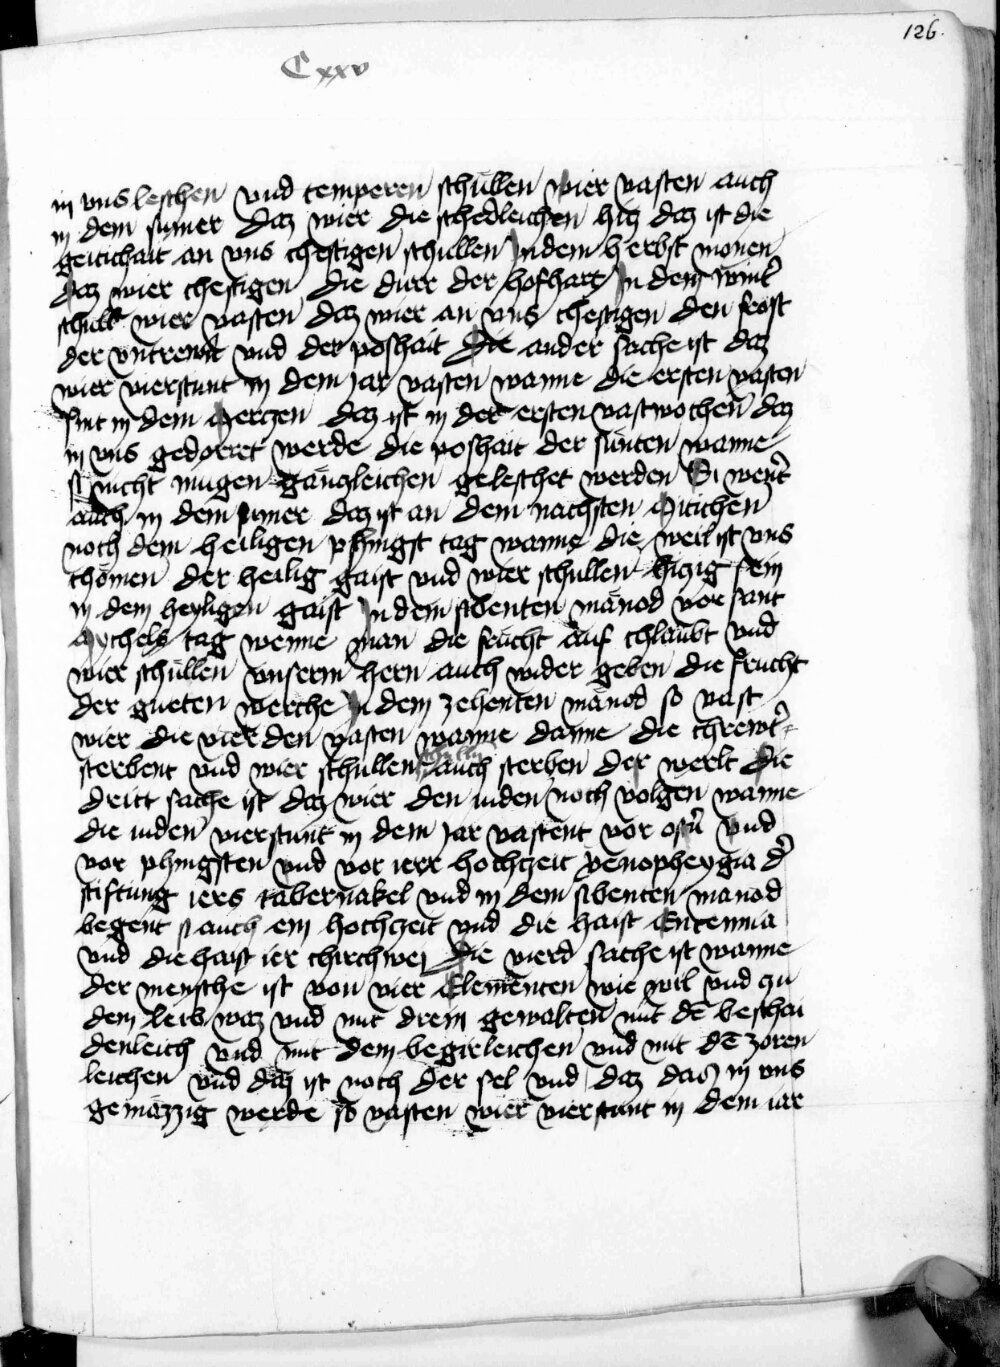 126.
Cxxv
in vns leschen vnd temperen schullen wier vasten auch
in dem sumer daz wier die schedleichen hicz daz ist die
geitichait an vns chestigen schullen In dem herbst monen
daz wier chestigen die durr der hofhart In dem wint̉
schull wier vasten daz wier an vns chestigen den frost
der vntrewn̉ vnd der poshait Die ander sache ist daz
wier vierstunt in dem Jar vasten wanne die ersten vasten
sint in dem Merczen daz ist in der ersten vastwochen daz
in vns gedorret werde die poshait der sunten wanne
si nicht mugen ganczleichen geleschet werden Si wert̉
auch in dem sumer daz ist an dem nachsten Mitichen
noch dem heiligen phingst tag wanne die weil ist vns
chomen der heilig gaist vnd wier schullen hiczig sein
in dem heyligen gaist In dem sibenten manod vor sant
Mychels tag wenne man die frucht auf chlaubt vnd
wier schullen vnserm hern auch wider geben die frucht
der gueten werche In dem zehenten manod so vast
wier die vierden vasten wanne danne die chrewt̉
sterbent vnd wier schullen auch sterben der werlt Die
dritt sache ist daz wier den iuden noch volgen wanne
die iuden vierstunt in dem Jar vastent vor ostn̉ vnd
vor phingsten vnd vor ierr hochczeit zenopheygia d̉
stiftung iers tabernakel vnd in dem sibenten manod
begent si auch ein hochczeit vnd die haist Entennia
vnd die haist ier chirchwei Die vierd sache ist wanne
der mensche ist von vier Elementen wie wil vnd czu
dem leib waz vnd mit drein gewalten mit dē beschai
denleich vnd mit dem begirleichen vnd mit dē zoren
leichen vnd daz ist noch der sel vnd daz daz in vns
gemazzig werde so vasten wier vierstunt in dem iar